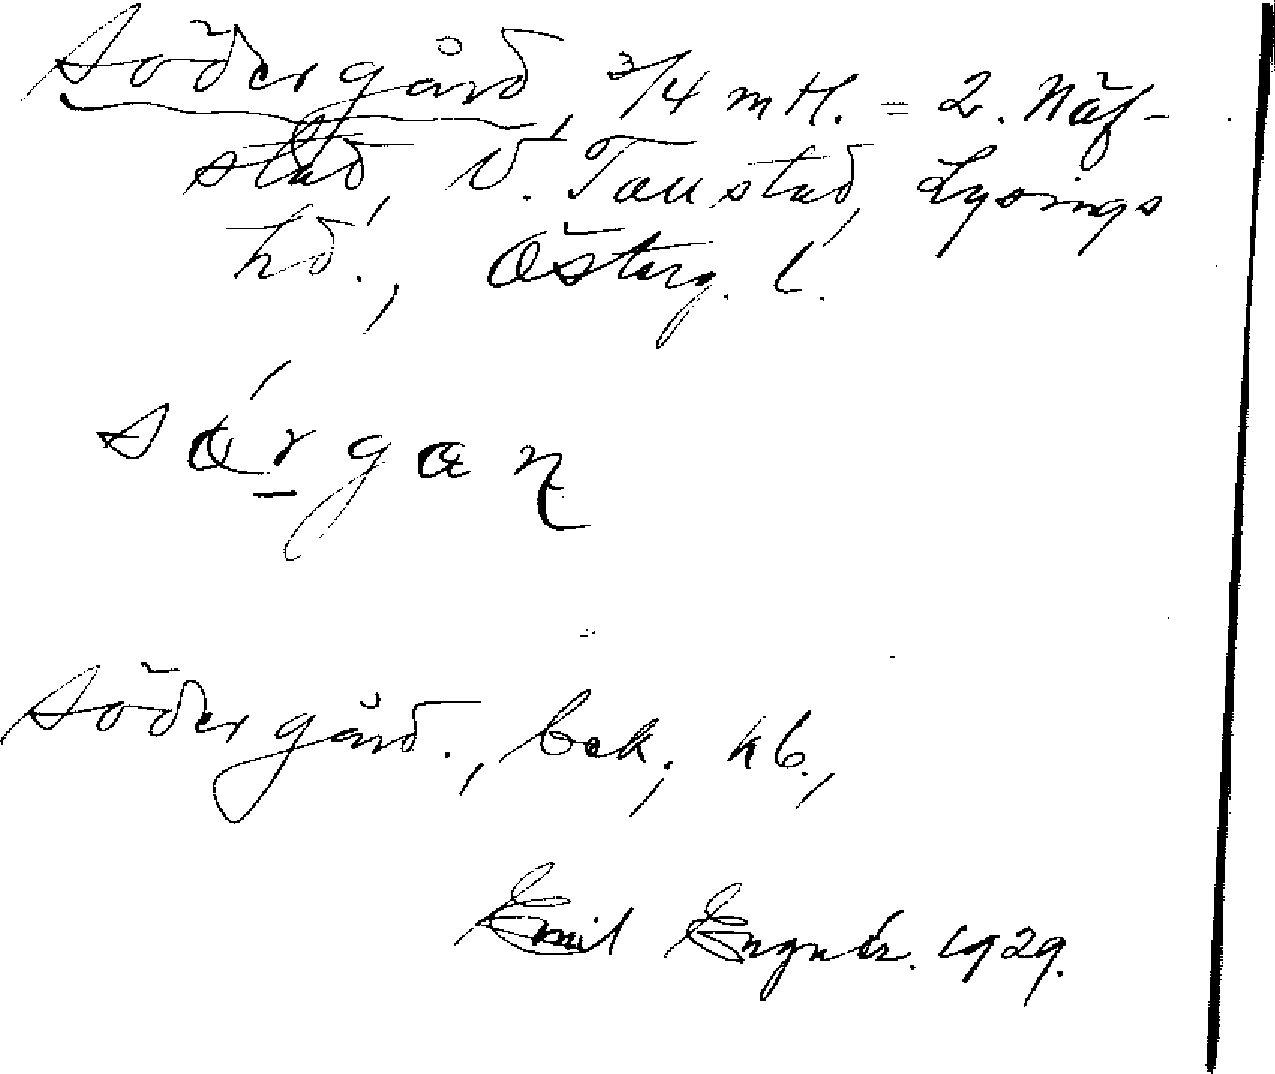 Södergård, 3/4 mtl. = 2. Näf-
stad, V. Tollstad, Lysings
hd., Österg. l.
Södergård., bek., kb.,
Emil Engner. 1929.